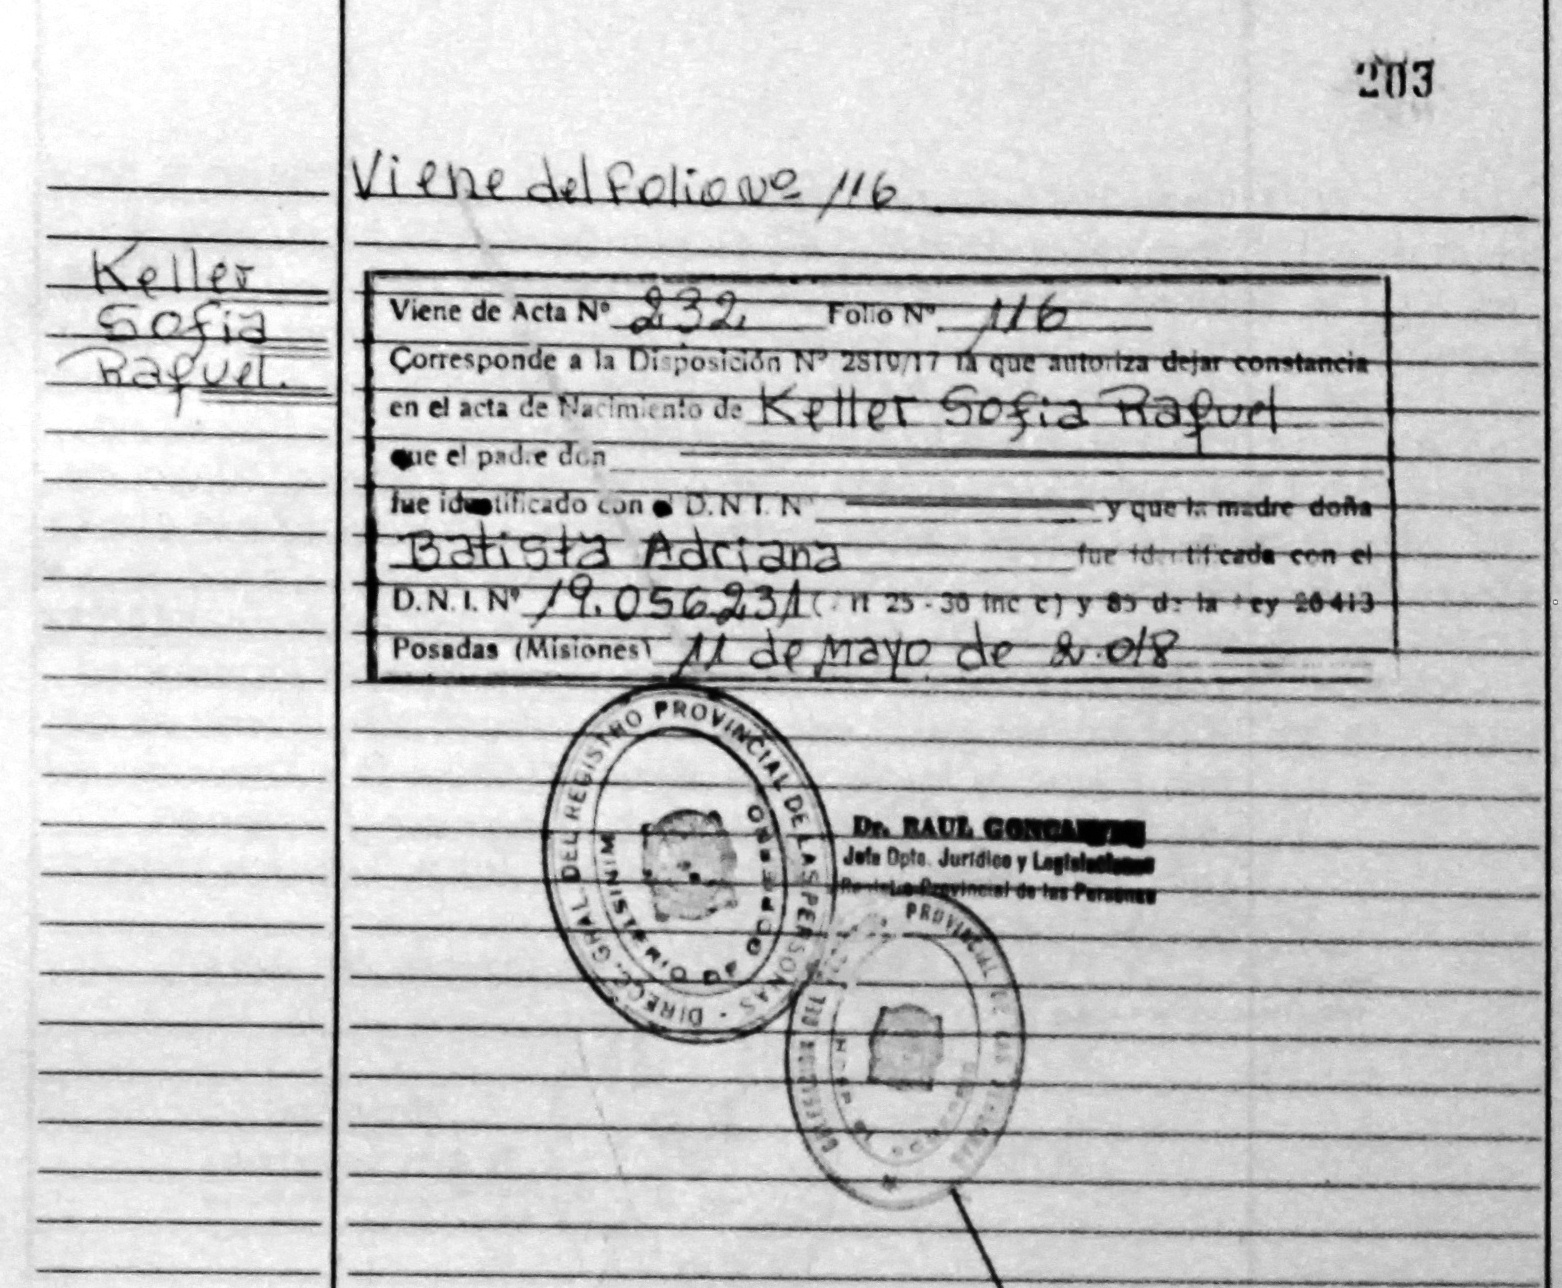 203
Viene del Folio Nº 116
Keller
Sofia
Raquel.
Viene de Acta Nº 232 Folio Nº 116
Corresponde a la Disposición Nº 2819/17 la que autoriza dejar constancia
en el acta de Nacimiento de Keller Sofia Raquel
que el padre don
fue identificado con el D.N.I. Nº y que la madre doña
Batista Adriana fue identificada con el
D.N.I. Nº 19.056.231 25 - 30 inc c) y 85 de la Ley 20413
Posadas (Misiones) 11 de Mayo de 2.018
DIRECC. GRAL DEL REGISTRO PROVINCIAL DE LAS PERSONAS
MINISTERIO DE GOBIERNO
Dr. RAUL
Jefe Dpto. Jurídico y
Provincial de las Personas
PROVINCIAL DE LAS PERSONAS